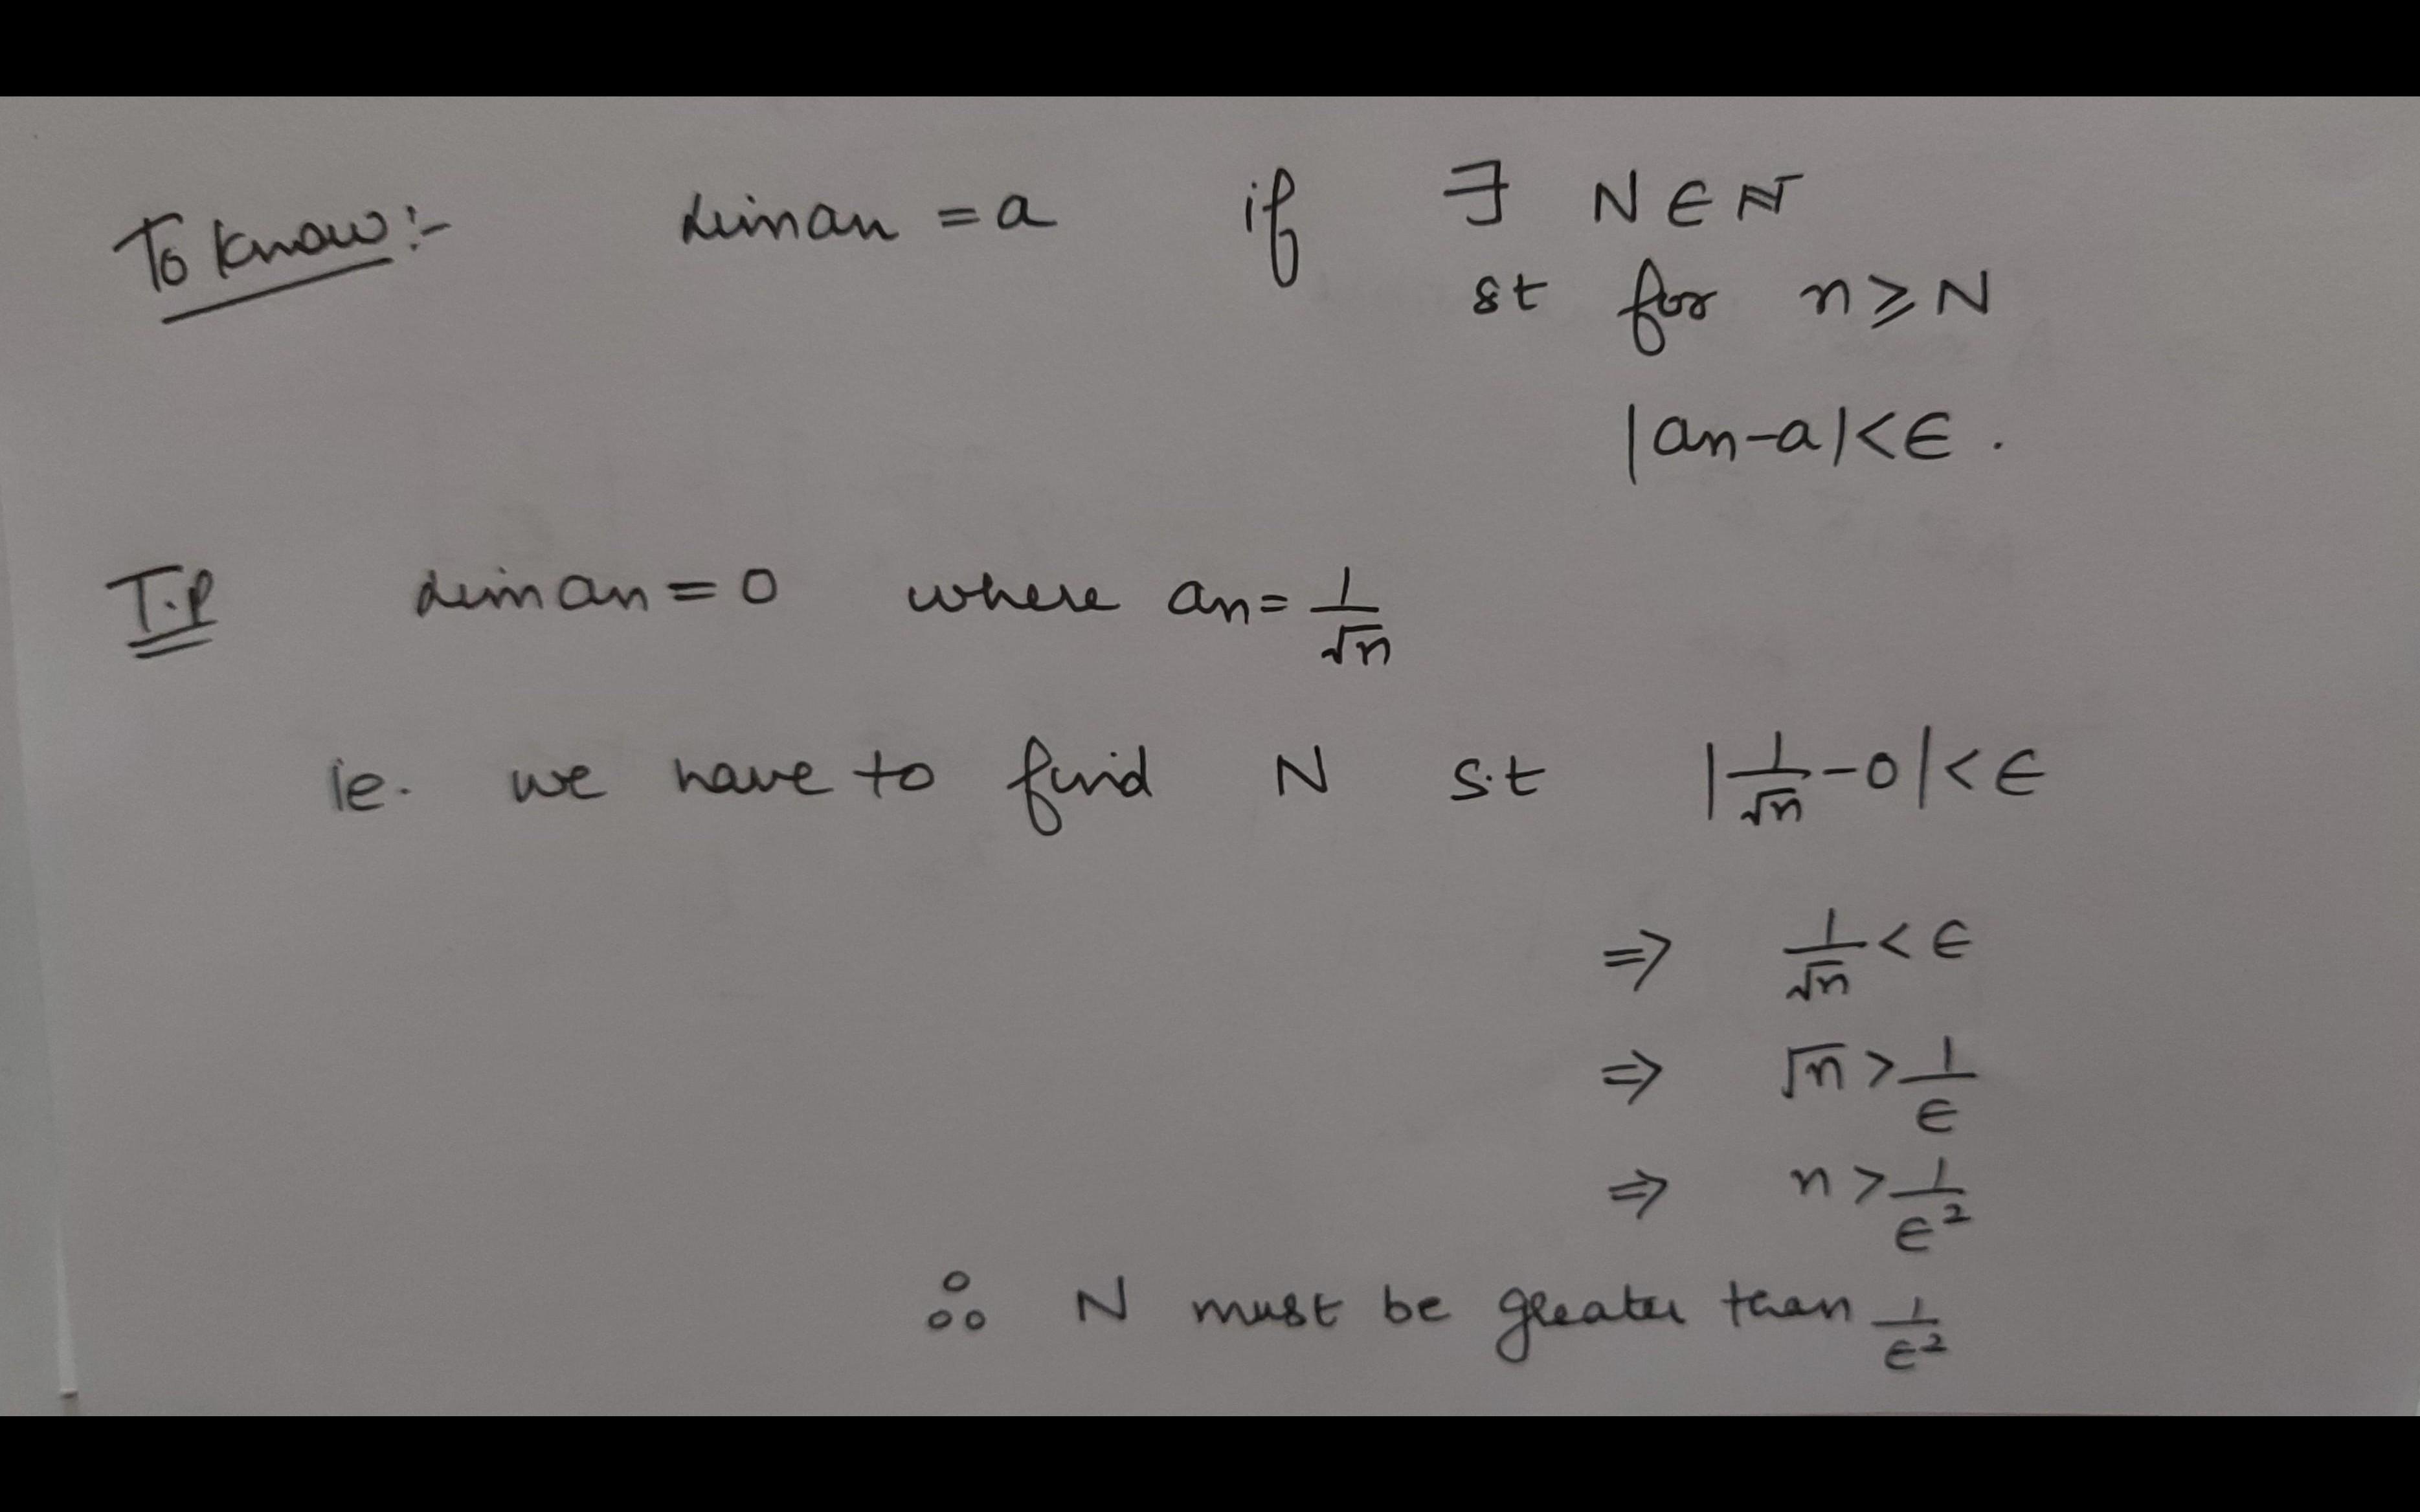 To know:- lim an = a if ∃ N ∈ ℕ
st for n ≥ N
|an-a|<ϵ.
T.P lim an = 0 where an = 1/√n
ie. we have to find N s.t |1/√n - 0| < ϵ
⇒ 1/√n < ϵ
⇒ √n > 1/ϵ
⇒ n > 1/ϵ²
∴ N must be greater than 1/ϵ²